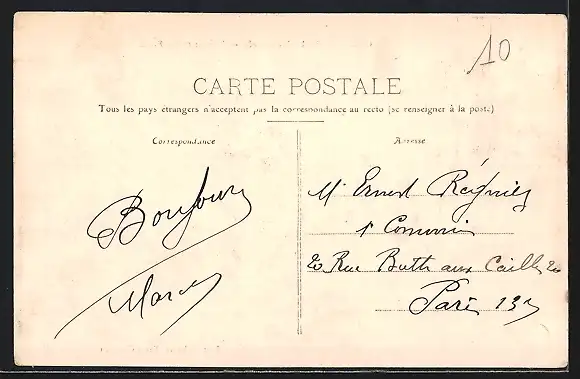 10
CARTE POSTALE
Tous les pays étrangers n'acceptent pas la correspondance au recto (se renseigner à la poste)
Correspondance
Adresse
Bonjour
Marcel
Mr Ernest Régnier
20 Rue Butte aux Cailles 20
Paris 13e